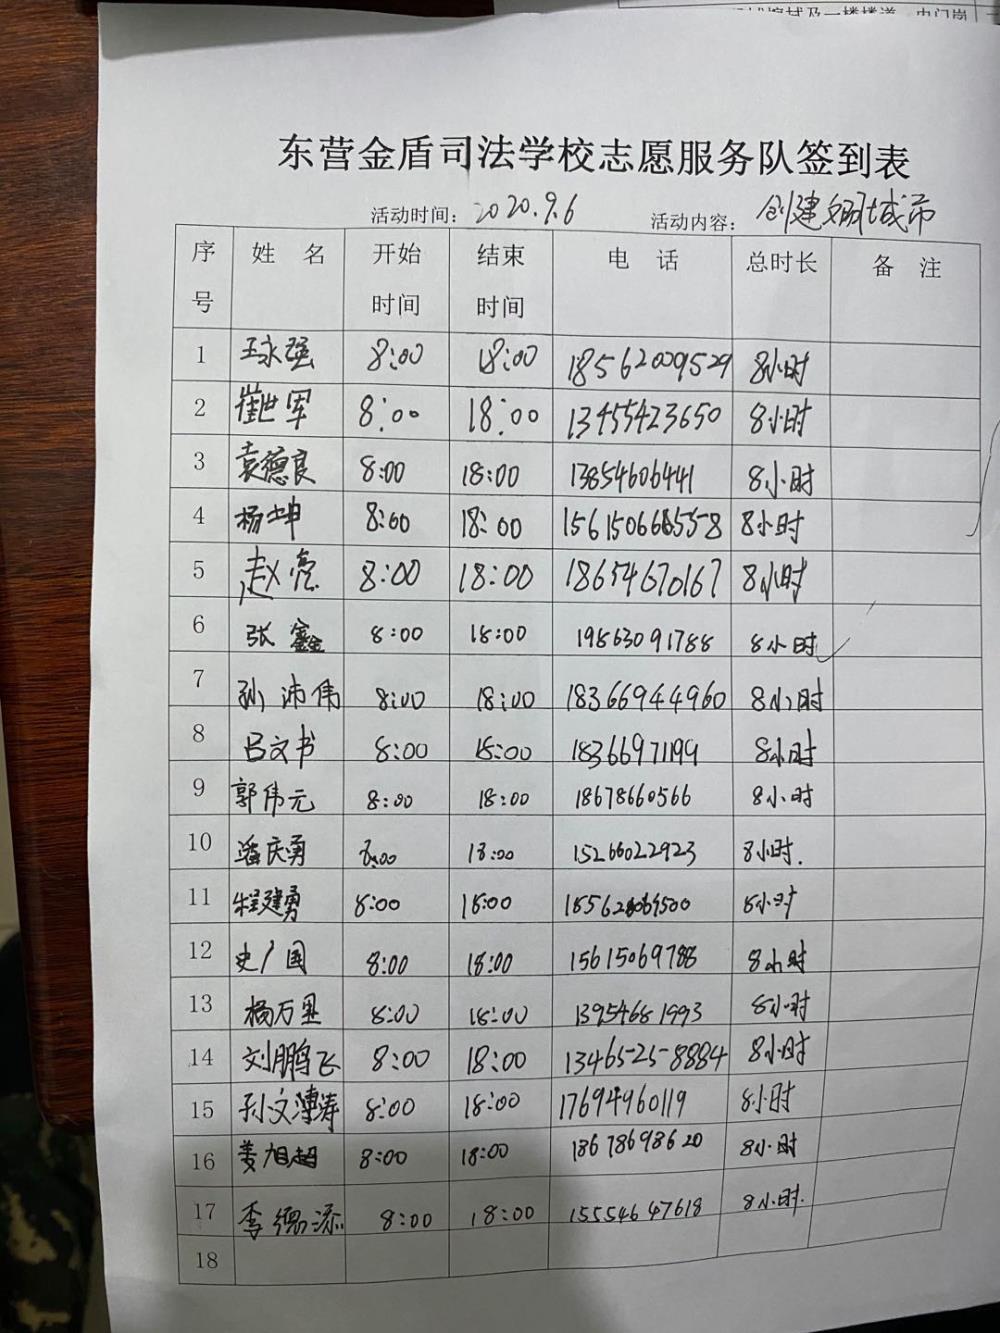 东营金盾司法学校志愿服务队签到表
活动时间：2020.9.6 活动内容：创建文明城市
序号 姓 名 开始时间 结束时间 电 话 总时长 备 注
1 王永强 8:00 18:00 18562009529 8小时
2 崔世军 8:00 18:00 13455423650 8小时
3 袁德良 8:00 18:00 13854606441 8小时
4 杨坤 8:00 18:00 8小时
5 赵亮 8:00 18:00 18654670167 8小时
6 张鑫 8:00 18:00 19863091788 8小时
7 孙沛伟 8:00 18:00 18366944960 8小时
8 吕文书 8:00 18:00 18366971199 8小时
9 郭伟元 8:00 18:00 18678660566 8小时
10 潘庆勇 8:00 18:00 15266022923 8小时.
11 程建勇 8:00 18:00 8小时
12 史广国 8:00 18:00 15615069788 8小时
13 杨万里 8:00 18:00 13954681993 8小时
14 刘鹏飞 8:00 18:00 13465-25-8884 8小时
15 8:00 18:00 17694960119 8小时
16 姜旭超 8:00 18:00 18678698620 8小时
17 李德添 8:00 18:00 15554647618 8小时.
18